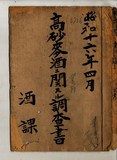 昭和十六年四月
高砂麥酒ニ関スル調査書
酒課